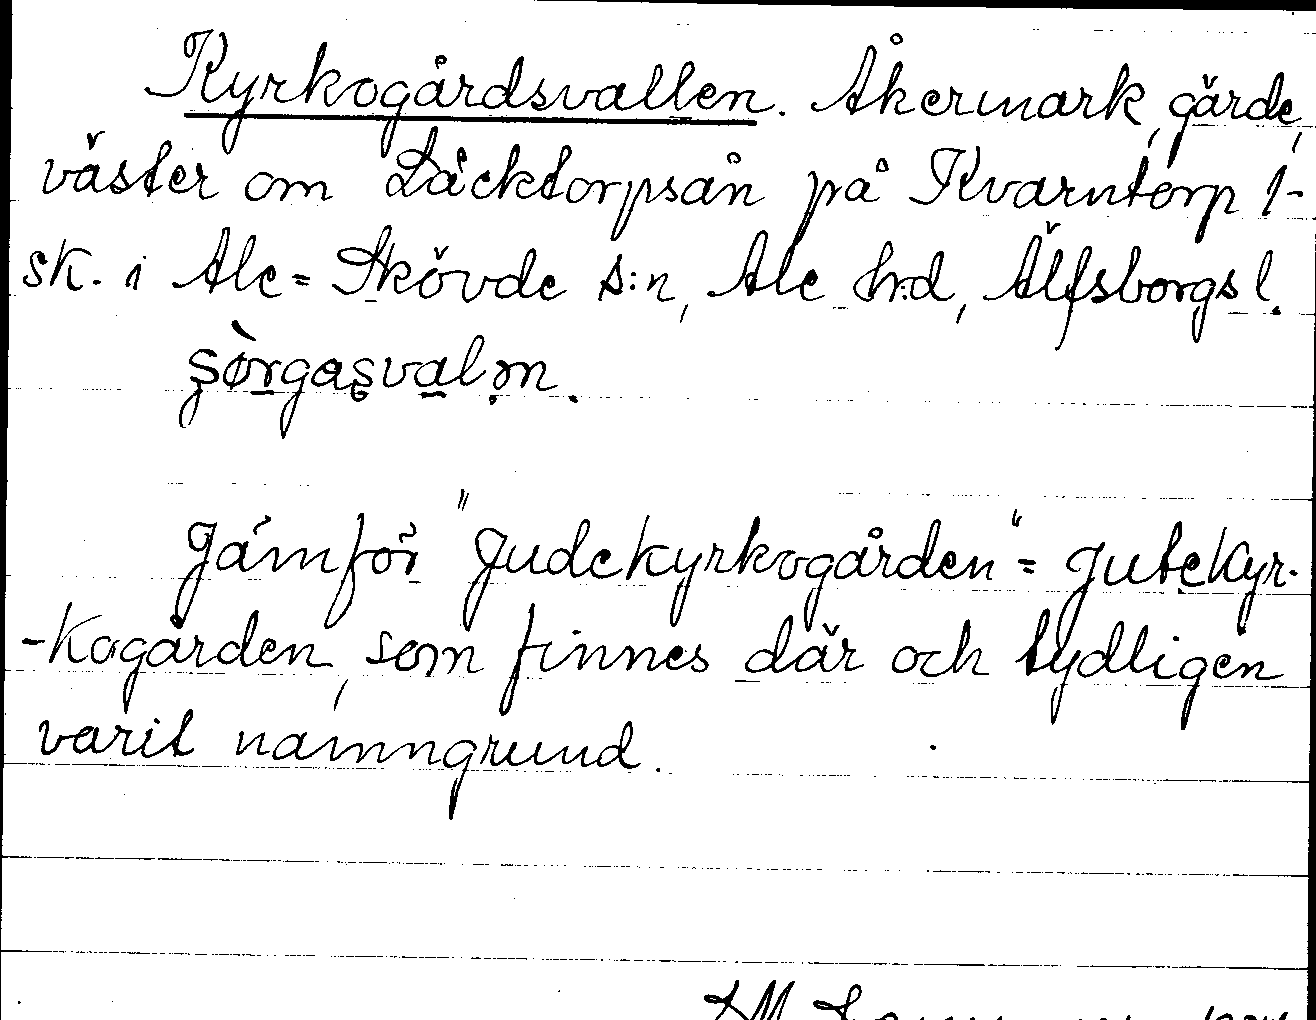 Kyrkogårdsvallen. Åkermark, gärde,
väster om Läcktorpsån på Kvarntorp 1-
sk. i Ale=Skövde s:n, Ale hd, Älfsborgs l.
sòrgasvalm.
Jämför "Judekyrkogården" = Jutekyr-
-kogården, som finnes där och tydligen
varit namngrund.